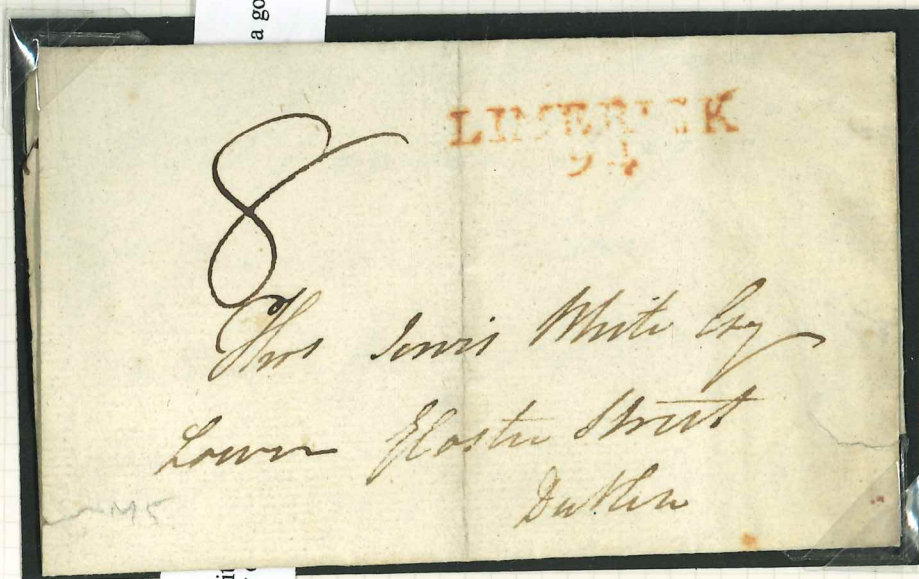 a go
LIMERICK
94
8
Thos Jervis White Esq
Lower Glo'ster Street
Dublin
M5